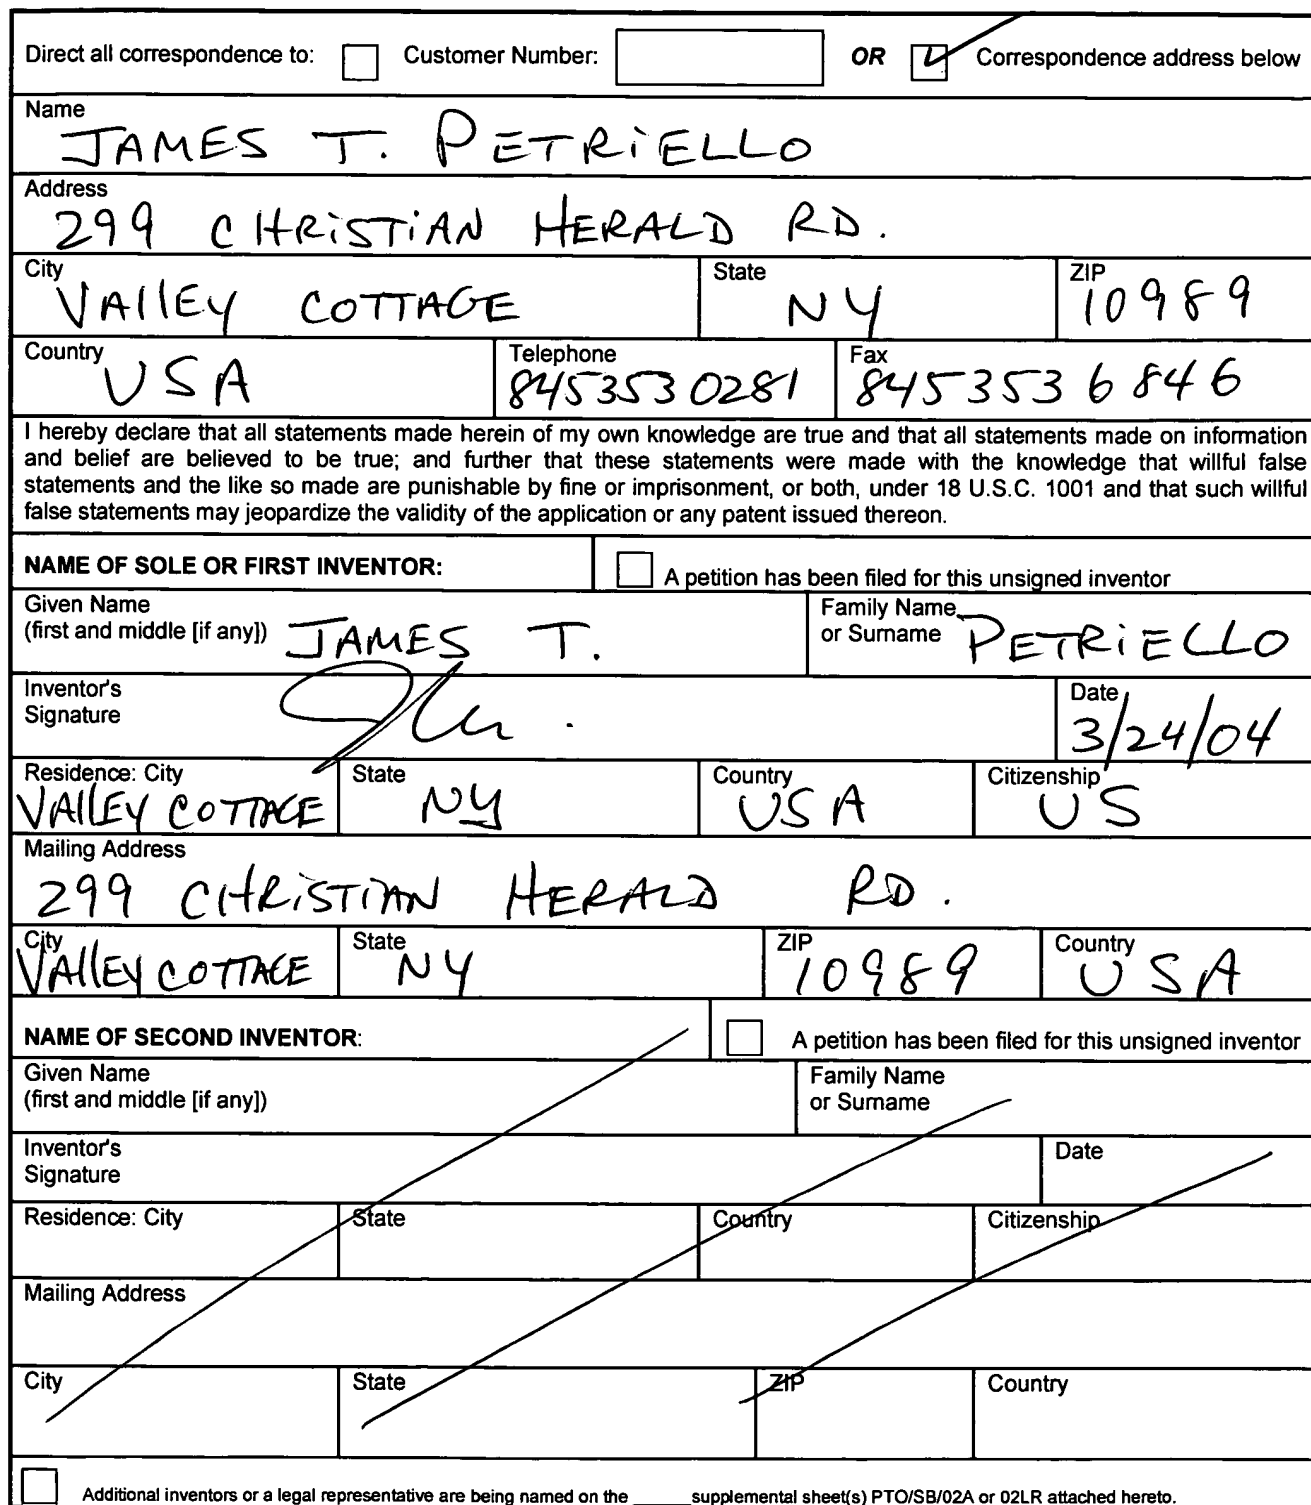 Direct all correspondence to: Customer Number: OR Correspondence address below
Name
JAMES T. PETRiELLO
Address
299 CHRiSTiAN HERALD RD.
City State ZIP
VAllEy COTTAGE NY 10989
Country Telephone Fax
USA 8453530281 8453536846
I hereby declare that all statements made herein of my own knowledge are true and that all statements made on information
and belief are believed to be true; and further that these statements were made with the knowledge that willful false
statements and the like so made are punishable by fine or imprisonment, or both, under 18 U.S.C. 1001 and that such willful
false statements may jeopardize the validity of the application or any patent issued thereon.
NAME OF SOLE OR FIRST INVENTOR: A petition has been filed for this unsigned inventor
Given Name Family Name
(first and middle [if any]) JAMES T. or Surname PETRiELLO
Inventor's Date
Signature 3/24/04
Residence: City State Country Citizenship
VAllEy COTTAGE NY USA US
Mailing Address
299 CHRiSTiAN HERALD RD.
City State ZIP Country
VAllEy COTTAGE NY 10989 USA
NAME OF SECOND INVENTOR: A petition has been filed for this unsigned inventor
Given Name Family Name
(first and middle [if any]) or Surname
Inventor's Date
Signature
Residence: City State Country Citizenship
Mailing Address
City State ZIP Country
Additional inventors or a legal representative are being named on the _____ supplemental sheet(s) PTO/SB/02A or 02LR attached hereto.